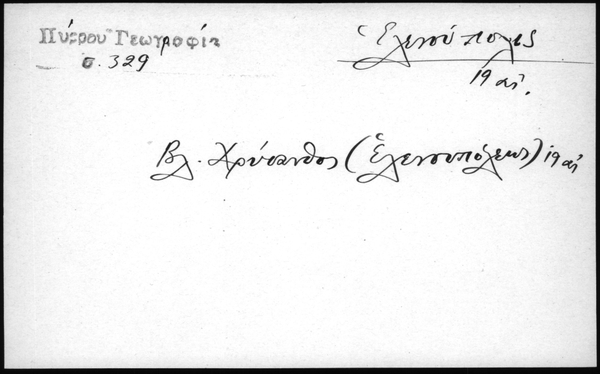 Πύρρου Γεωγραφία
σ. 329
Ἑλενούπολις
19 αἰ.
Βλ. Χρύσανθος (Ἑλενουπόλεως) 19 αἰ